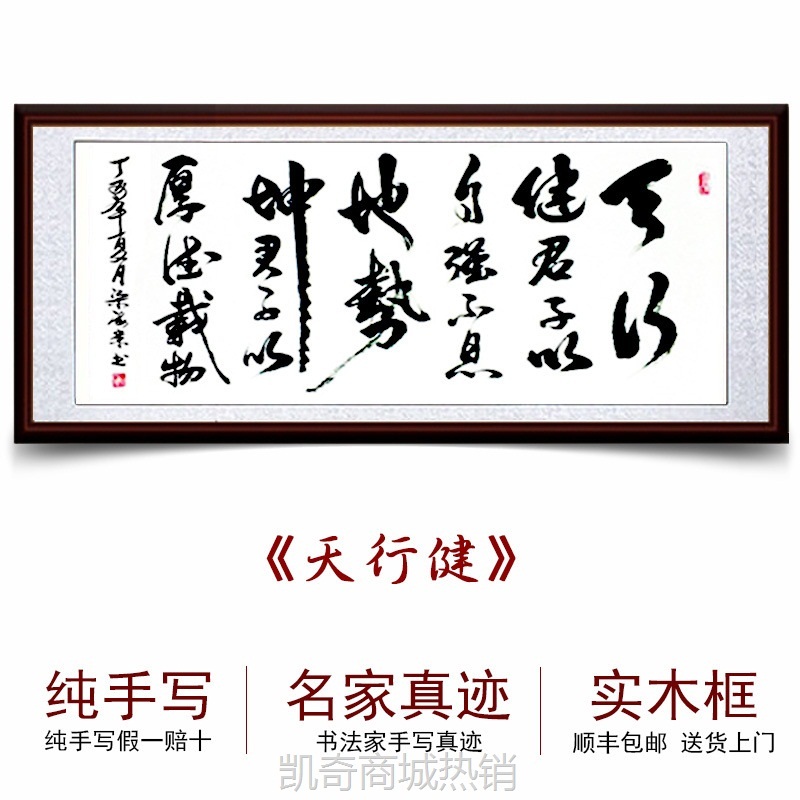 天行
健君子以
自强不息
地勢
坤君子以
厚德载物
《天行健》
纯手写
纯手写假一赔十
名家真迹
书法家手写真迹
实木框
顺丰包邮 送货上门
凯奇商城热销